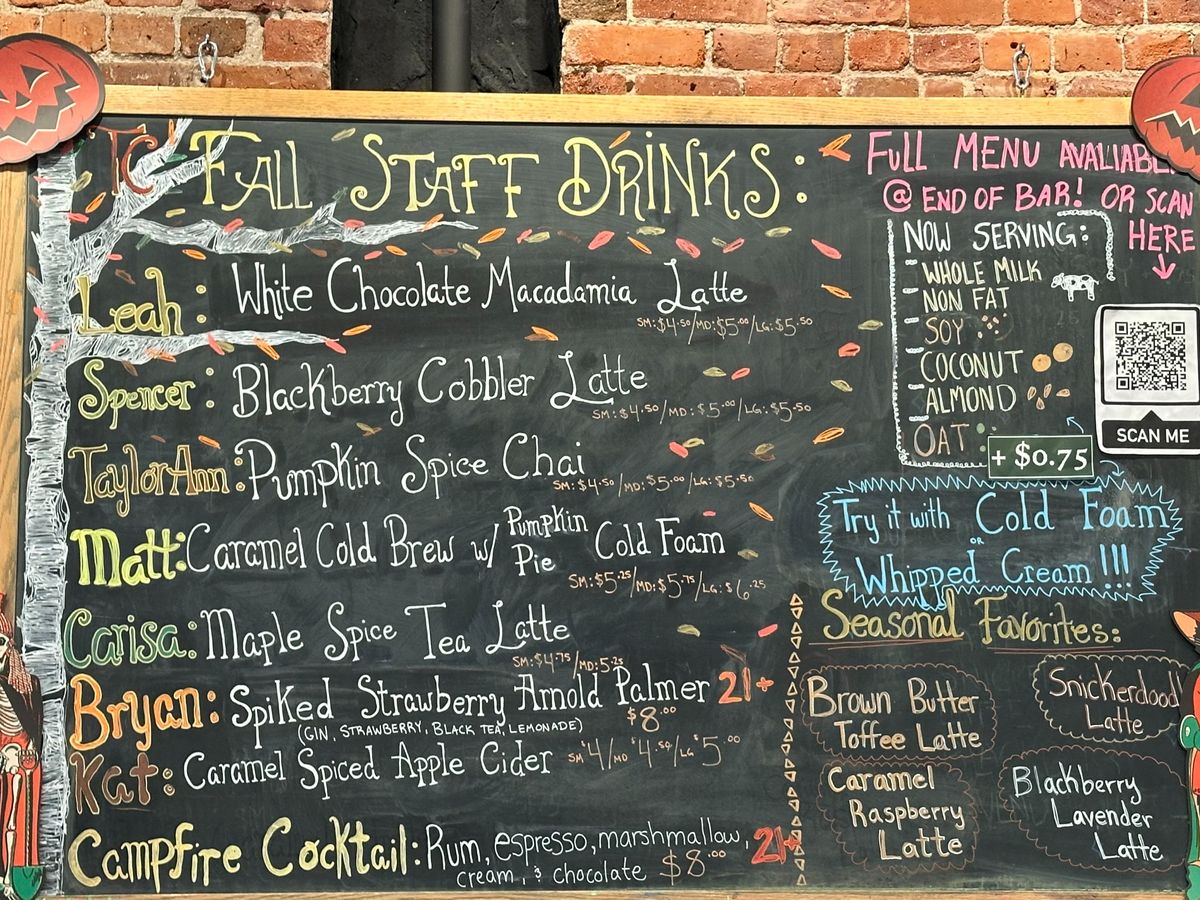 TC FALL STAFF DRINKS:
Leah: White Chocolate Macadamia Latte
SM:$4.50/MD:$5.00/LG:$5.50
Spencer: Blackberry Cobbler Latte
SM:$4.50/MD:$5.00/LG:$5.50
TaylorAnn: Pumpkin Spice Chai
SM:$4.50/MD:$5.00/LG:$5.50
Matt: Caramel Cold Brew w/ Pumpkin Pie Cold Foam
SM:$5.25/MD:$5.75/LG:$6.25
Carisa: Maple Spice Tea Latte
SM:$4.75/MD:5.25
Bryan: Spiked Strawberry Arnold Palmer 21+
(GIN, STRAWBERRY, BLACK TEA, LEMONADE) $8.00
Kat: Caramel Spiced Apple Cider SM $4/MD $4.50/LG $5.00
Campfire Cocktail: Rum, espresso, marshmallow, 21+
cream, & chocolate $8.00
FULL MENU AVALIABLE
@ END OF BAR! OR SCAN
HERE
NOW SERVING:
- WHOLE MILK
- NON FAT
- SOY
- COCONUT
- ALMOND
- OAT
+ $0.75
SCAN ME
Try it with Cold Foam
or
Whipped Cream!!!
Seasonal Favorites:
Brown Butter
Toffee Latte
Snickerdood
Latte
Caramel
Raspberry
Latte
Blackberry
Lavender
Latte